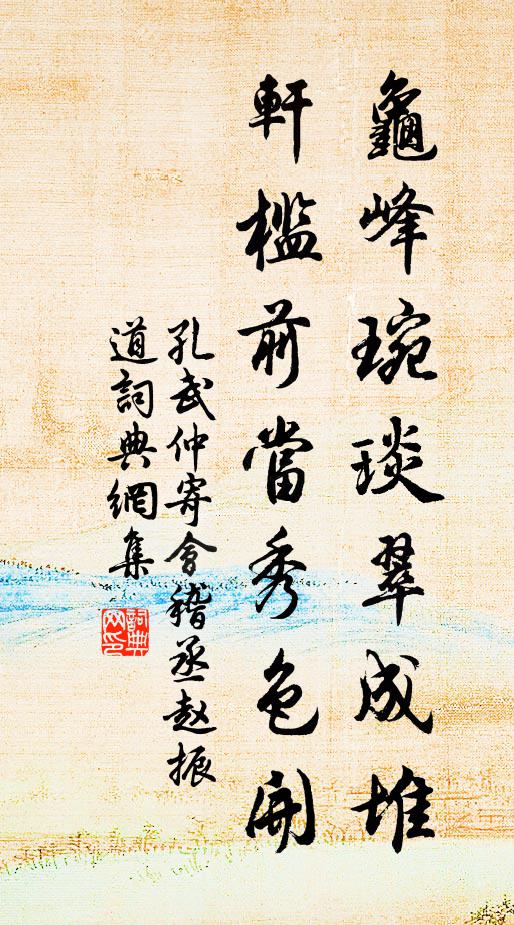 龜峰琬琰翠成堆
軒檻前當秀色開
孔武仲寄會稽丞赵振
道詞典網集
詞典網印